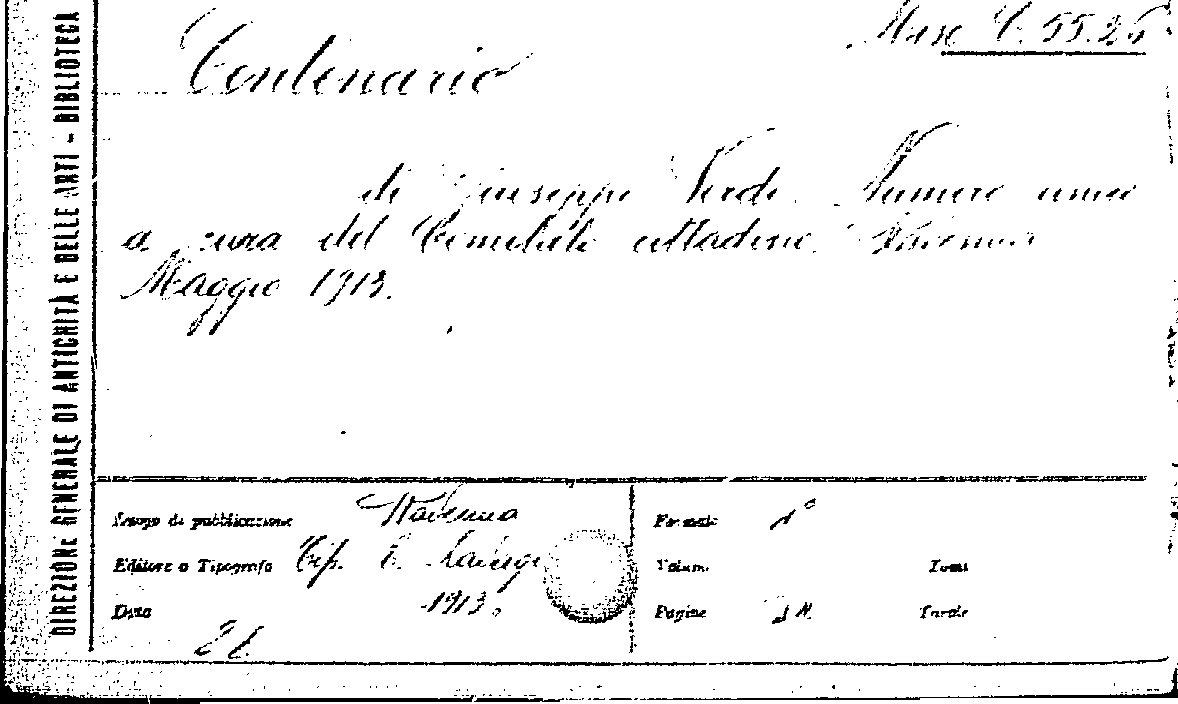 Misc C. 55.26
Centenario
di Giuseppe Verdi. Numero unico
a cura del Comitato cittadino. Ravenna
Maggio 1913.
DIREZIONE GENERALE DI ANTICHITÀ E DELLE ARTI - BIBLIOTECA
Luogo di pubblicazione Ravenna
Formato
Editore o Tipografo Tip. E. Lavagna
Volumi Tomi
Data 1913.
Pagine Tavole